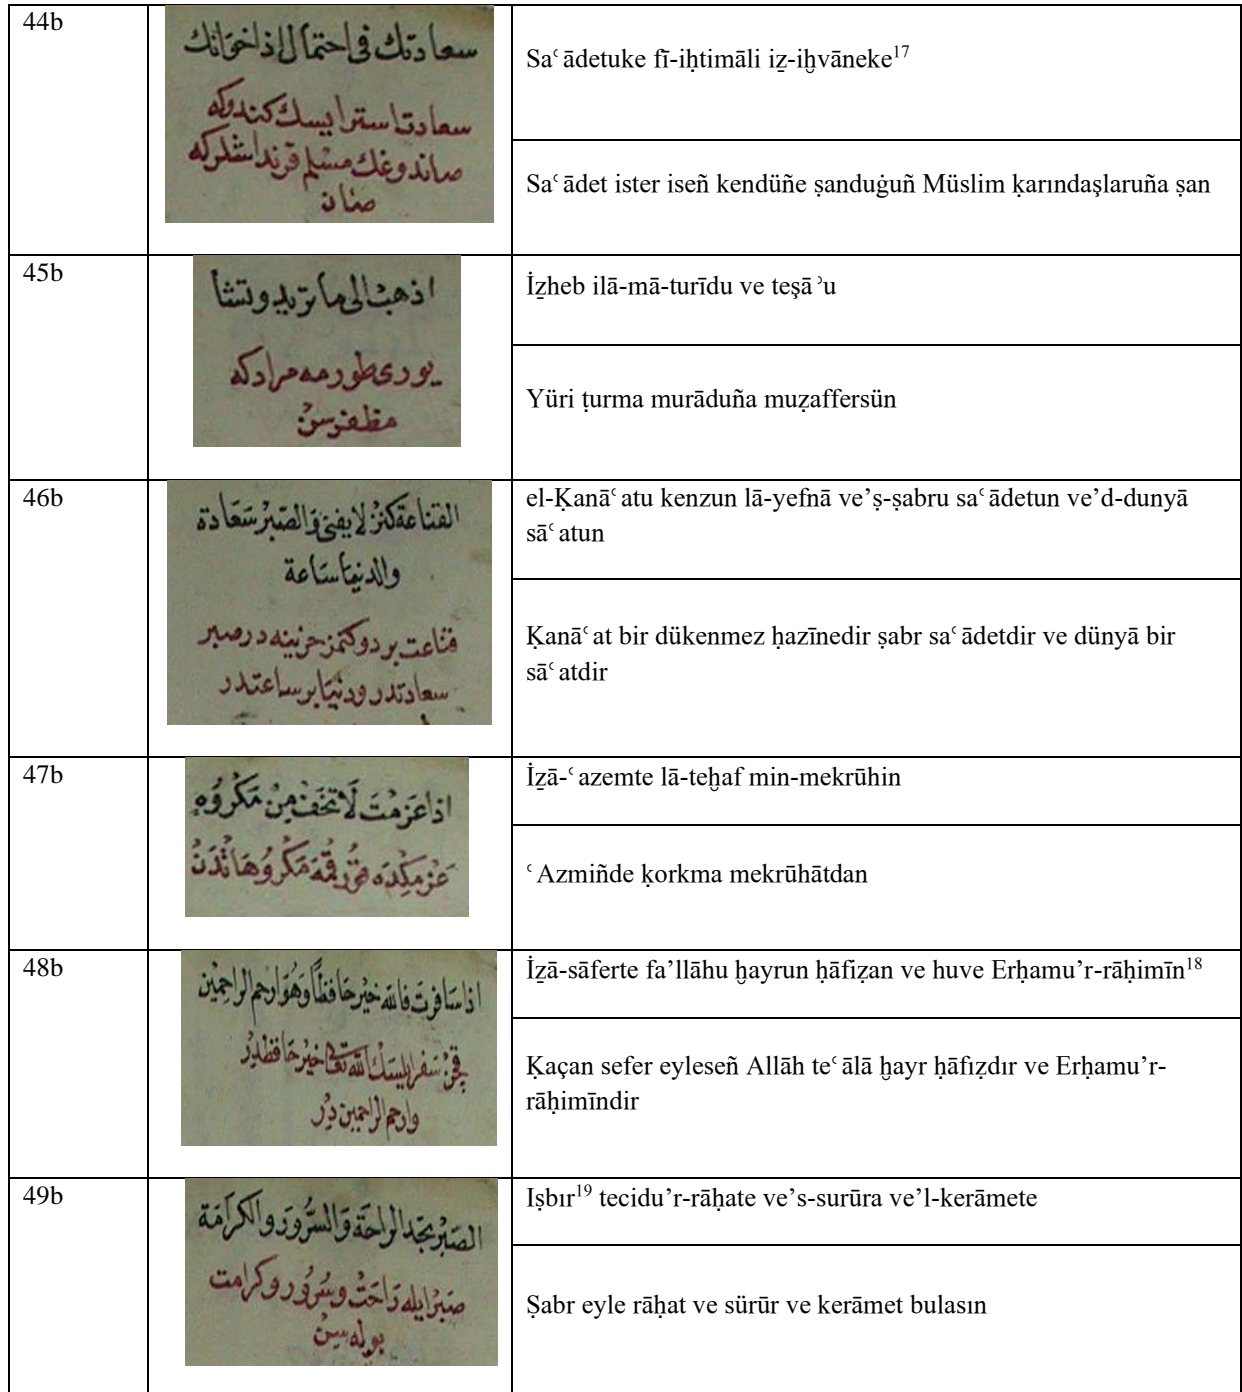 44b
سعادتك فى احتمال اذ اخوانك
سعادت استر ايسك كندوكه
صاندوغك مسلم قرنداشلركه
صان
Saʿādetuke fī-iḥtimāli iẕ-iḫvāneke17
Saʿādet ister iseñ kendüñe ṣanduġuñ Müslim ḳarındaşlaruña ṣan
45b
اذهب الى ما تريد وتشأ
يورى طورمه مرادكه
مظفرسن
İẕheb ilā-mā-turīdu ve teşāʾu
Yüri ṭurma murāduña muẓaffersün
46b
القناعة كنز لا يفنى وَالصّبْرُ سَعَادة
والدنيا سَاعة
قناعت بر دوكنمز خزينه در صبر
سعادتدر ودنيا بر ساعتدر
el-Ḳanāʿatu kenzun lā-yefnā ve’ṣ-ṣabru saʿādetun ve’d-dunyā
sāʿatun
Ḳanāʿat bir dükenmez ḥazīnedir ṣabr saʿādetdir ve dünyā bir
sāʿatdir
47b
اذا عَزَمْتَ لَا تَخَفْ مِنْ مَكْرُوُهٍ
عَزْمِكْدَه قورقْمَه مَكْرُوُهَاتْدَنْ
İẕā-ʿazemte lā-teḫaf min-mekrūhin
ʿAzmiñde ḳorkma mekrūhātdan
48b
اذا سَافرتَ فالله خيْرٌ حَافظًا وَهُوَ ارحم الراحِمِين
قچن سَفر ايلسك الله تعالى خير حَافظدِر
وارحم الراحمين دِر
İẕā-sāferte fa’llāhu ḫayrun ḥāfiẓan ve huve Erḥamu’r-rāḥimīn18
Ḳaçan sefer eyleseñ Allāh teʿālā ḫayr ḥāfıẓdır ve Erḥamu’r-
rāḥimīndir
49b
الصَبْرُ تجد الراحَة وَالسُّرُورَ والكرَامَة
صَبْر ايله رَاحَتْ وسُرُور وكرامت
بوله سِنْ
Iṣbır19 tecidu’r-rāḥate ve’s-surūra ve’l-kerāmete
Ṣabr eyle rāḥat ve sürūr ve kerāmet bulasın